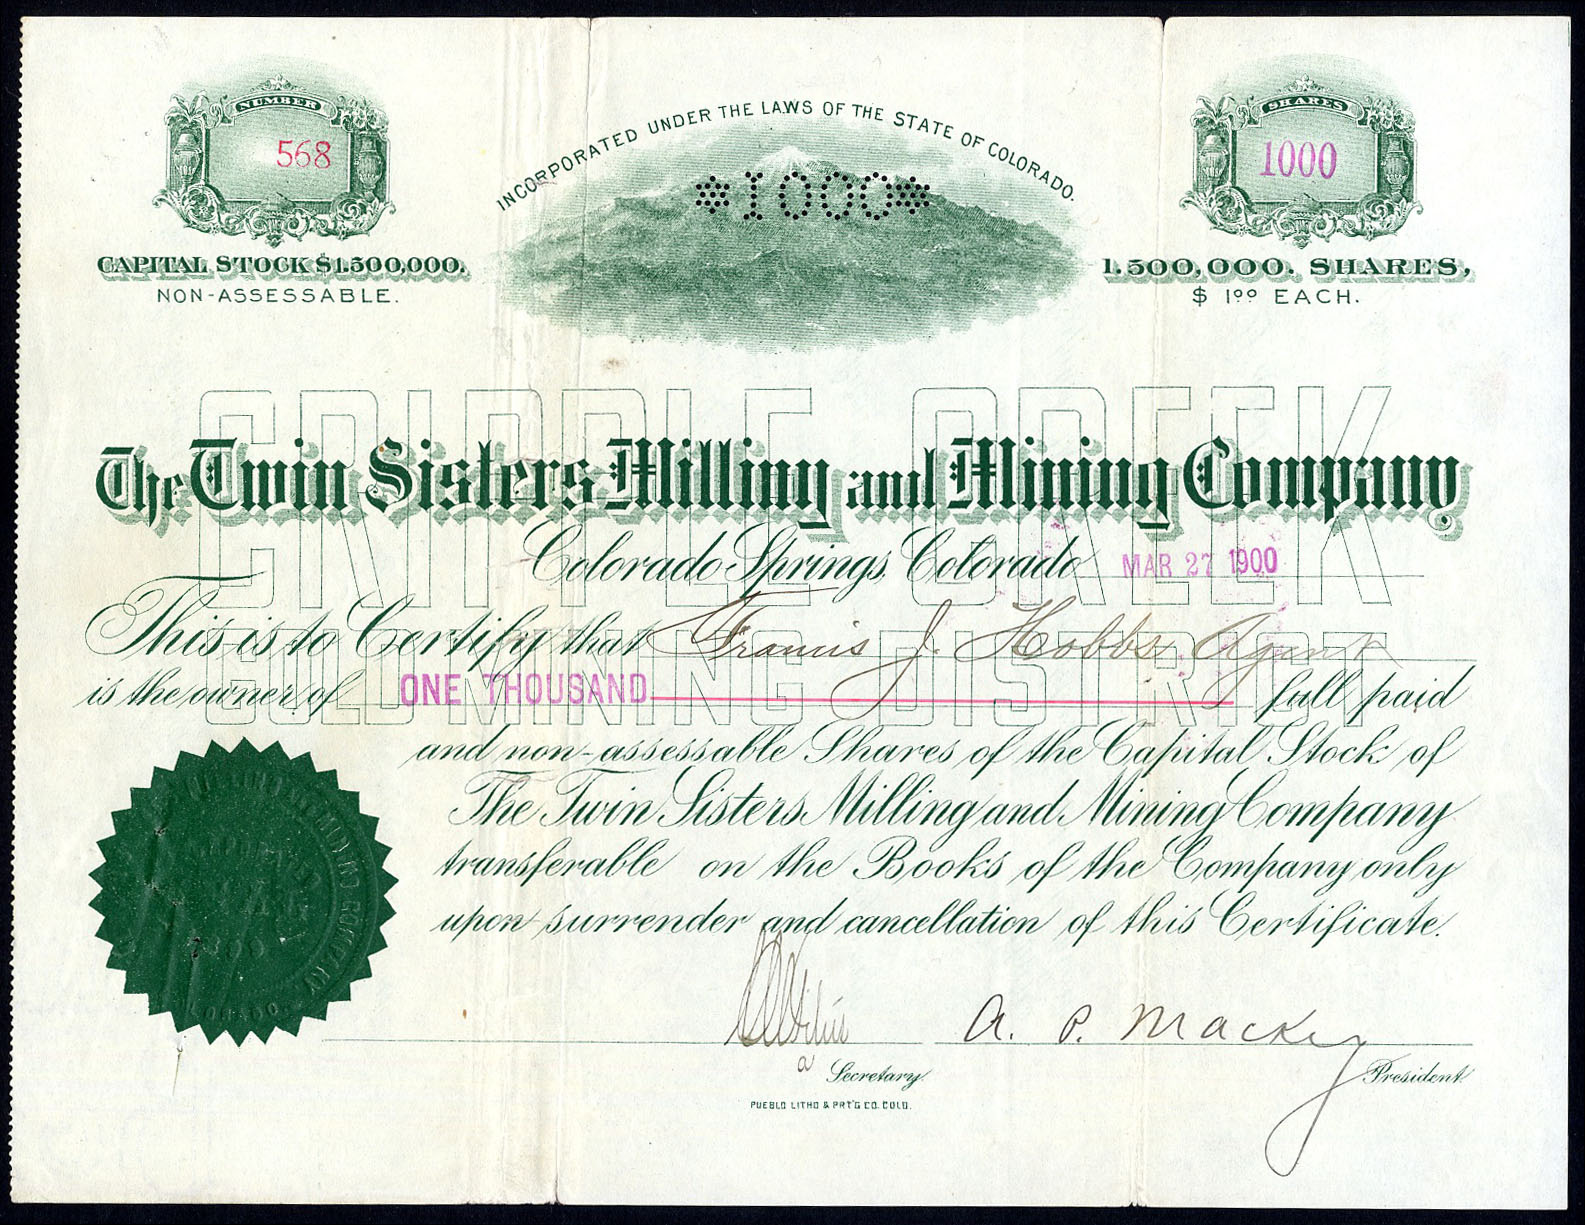 NUMBER
568
CAPITAL STOCK $1.500,000.
NON-ASSESSABLE.
INCORPORATED UNDER THE LAWS OF THE STATE OF COLORADO.
*1000*
SHARES
1000
1.500,000. SHARES,
$ 1.00 EACH.
CRIPPLE CREEK
GOLD MINING DISTRICT
The Twin Sisters Milling and Mining Company
Colorado Springs, Colorado MAR 27 1900
This is to Certify that Francis J. Hobbs, Agent
is the owner of ONE THOUSAND full paid
and non-assessable Shares of the Capital Stock of
The Twin Sisters Milling and Mining Company
transferable on the Books of the Company only
upon surrender and cancellation of this Certificate.
A. P. Mackey
Secretary. President.
PUEBLO LITHO & PRT'G CO. COLO.